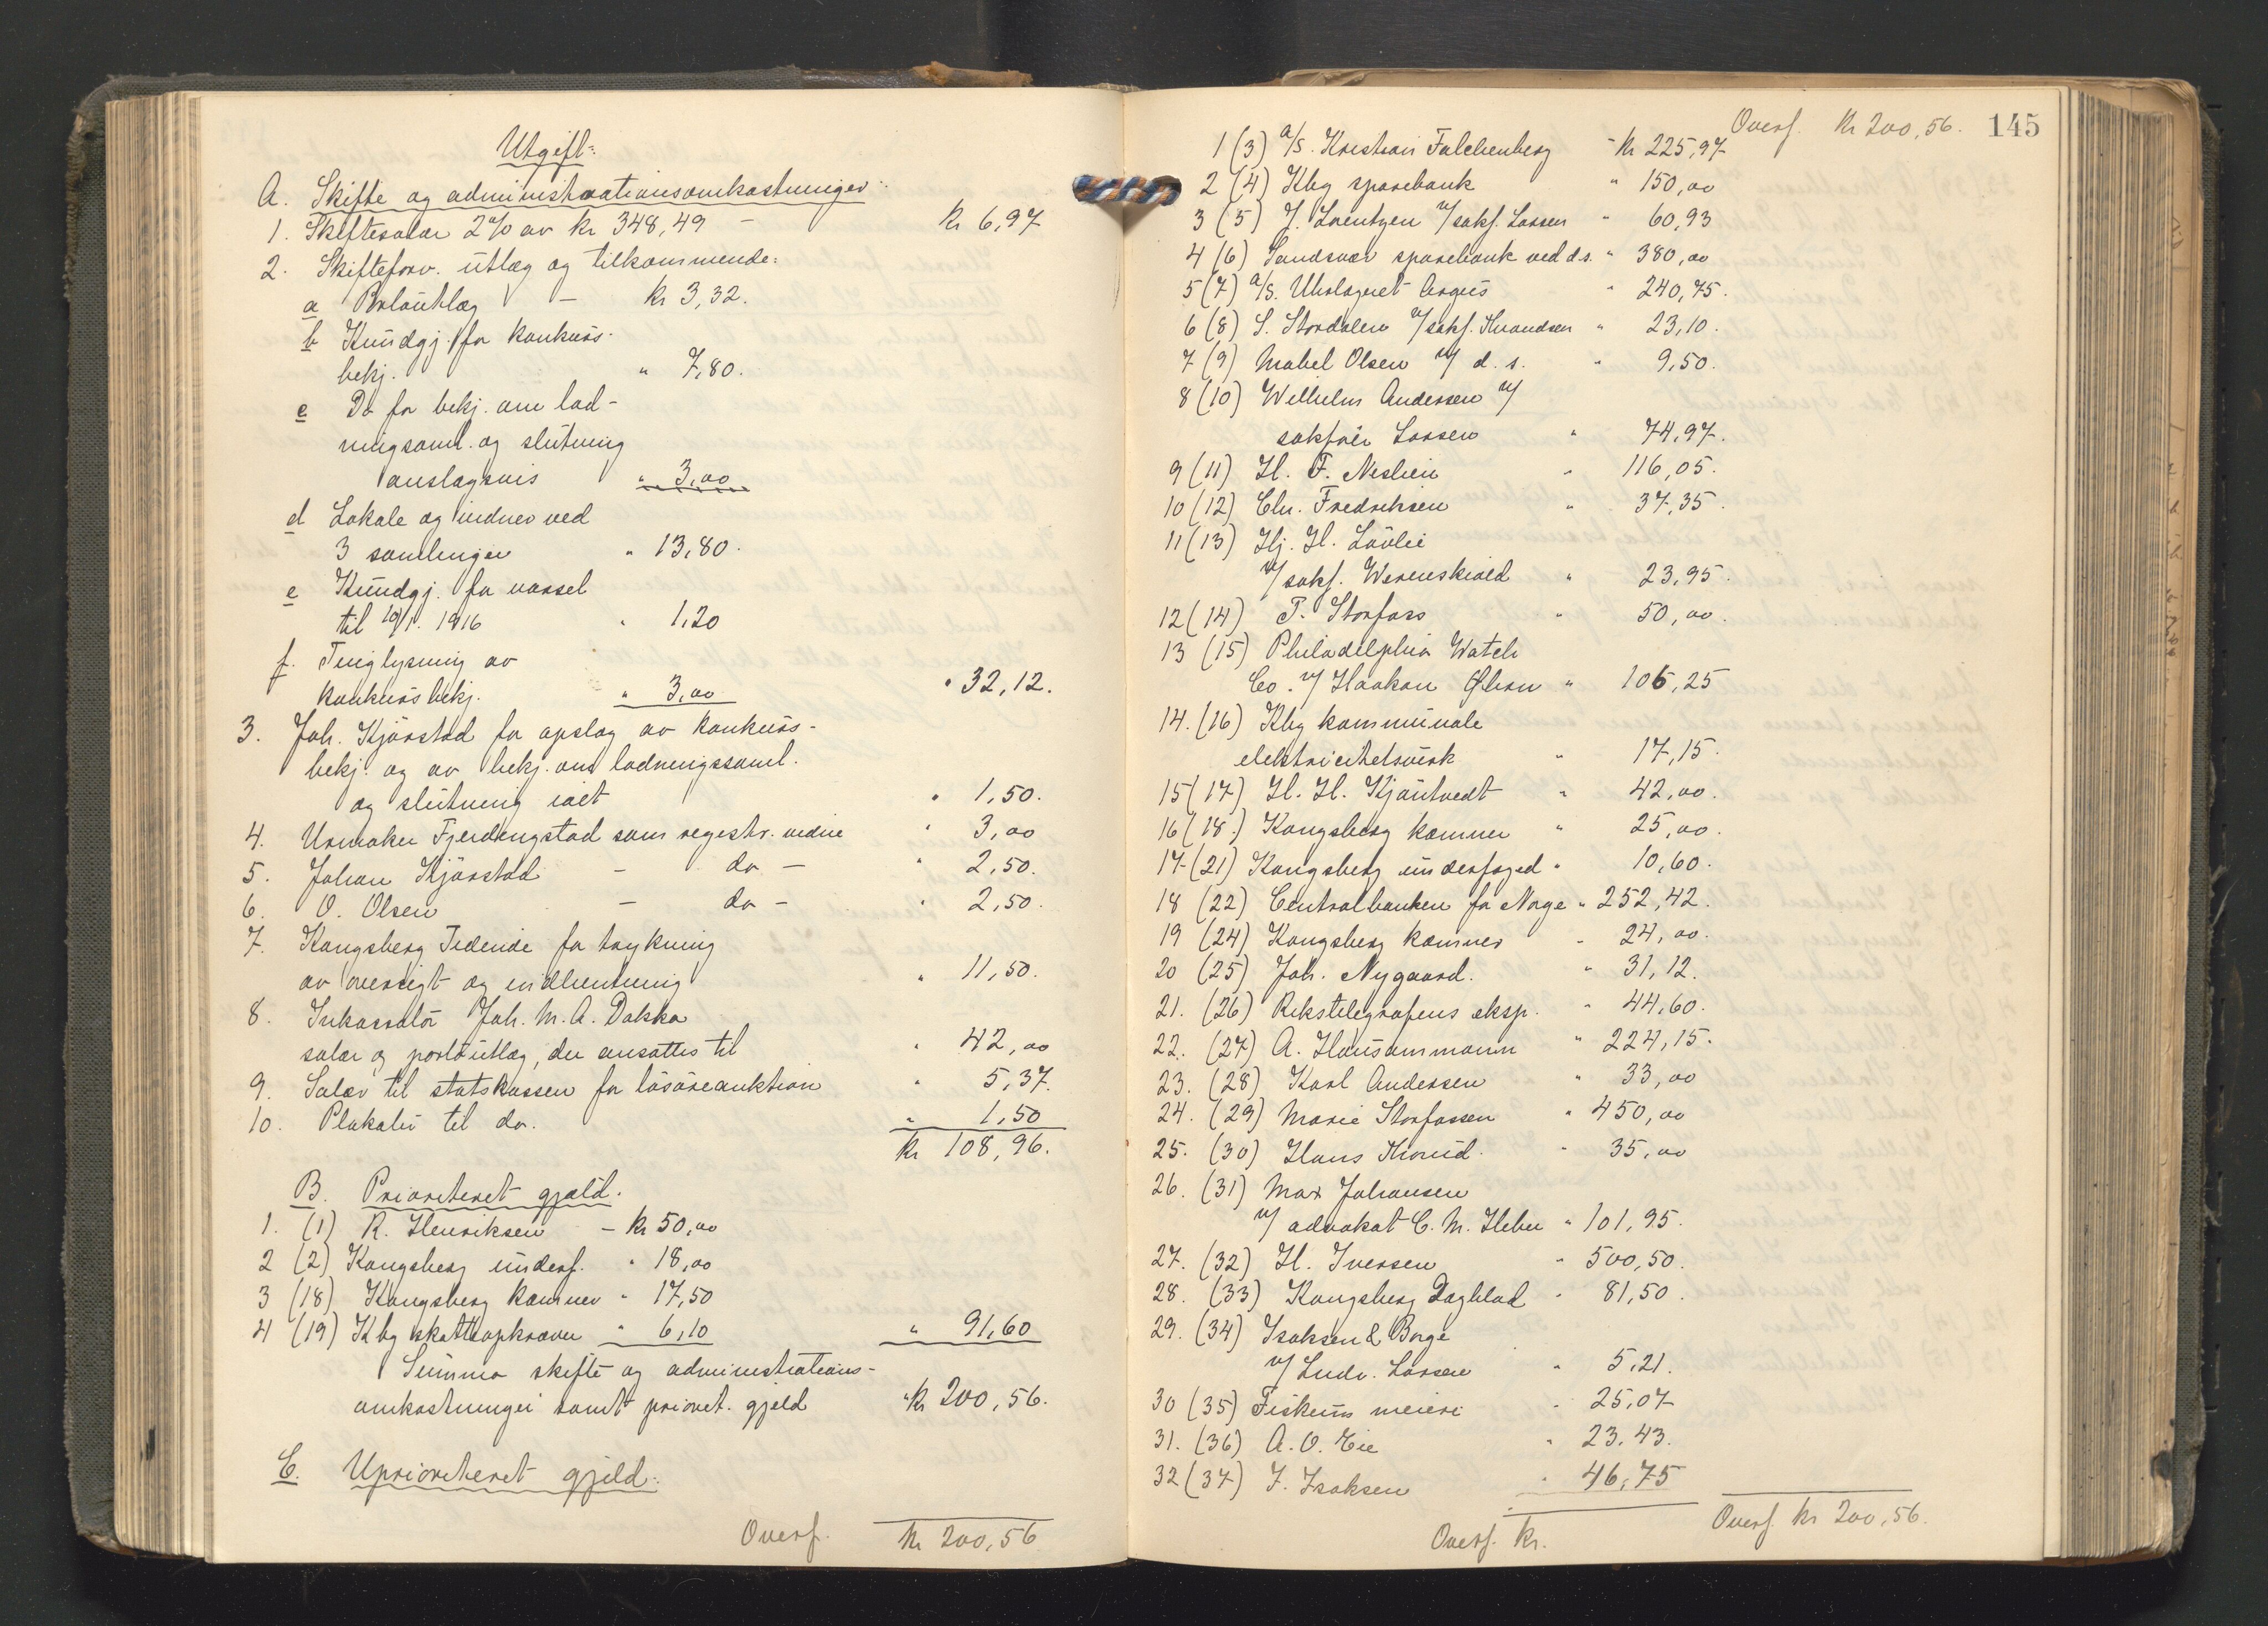 Utgift:
A. Skifte og administrationsomkostninger:
1. Skiftesalær 2% av kr 348,49 - kr 6,97
2. Skifteforv. utlæg og tilkommende:
a Portoutlæg - kr 3,32.
b Kundgj. for konkurs-
bekj. " 7,80.
c Do for bekj. om lad-
ningsaml. og slutning
anslagsvis " 3,00
d Lokale og vidner ved
3 samlinger " 13,80.
e Kundgj. for varsel
til 19/1. 1916 " 1,20
f. Tinglysning av
konkursbekj. " 3,00 " 32,12.
3. Joh. Kjørstad for opslag av konkurs-
bekj. og av bekj. om ladningssaml.
og slutning ialt " 1,50.
4. Urmaker Fjerdingstad som registr. vidne " 3,00
5. Johan Kjørstad - do - " 2,50.
6. O. Olsen - do - " 2,50.
7. Kongsberg Tidende for trykning
av oversigt og indhentning " 11,50.
8. Inkassatør Joh. M. A. Dokka
salær og portoutlæg, der ansættes til " 42,00
9. Salær til statskassen for løsøreauktion " 5,37.
10. Plakater til do. " 1,50
kr 108,96.
B. Prioriteret gjæld.
1. (1) R. Henriksen - kr 50,00
2 (2) Kongsberg underf. " 18,00
3 (18) Kongsberg kæmner " 17,50
4 (19) Kbg skatteopkræver " 6,10 " 91,60
Summa skifte og administrations-
omkostninger samt priorit. gjeld " kr 200,56.
C. Uprioriteret gjeld:
Overf. kr 200,56
Overf. kr 200,56. 145
1 (3) A/S. Kristian Falchenberg - kr 225,97
2 (4) Kbg sparebank " 150,00
3 (5) J. Lorentzen v/sakf. Lassen " 60,93
4 (6) Sandsvær sparebank ved d.s. " 380,00
5 (7) A/S. Urolageret Argus " 240,75.
6 (8) S. Stordalen v/sakf. Knudsen " 23,10.
7 (9) Mabel Olsen v/ d. s. " 9,50.
8 (10) Wilhelm Andersen v/
sakfør Lassen " 74,97.
9 (11) H. F. Neslein " 116,05.
10 (12) Chr. Fredriksen " 37,35.
11 (13) Hj. H. Løvlie
v/sakf. Werenskiold " 23,95.
12 (14) P. Storfoss " 50,00.
13 (15) Philadelphia Watch
Co. v/ Haakon Ølson " 106,25
14. (16) Kbg kommunale
elektricitetsverk " 17,15.
15 (17) H. H. Kjøntvedt " 42,00.
16 (18.) Kongsberg kæmner " 25,00.
17 (21) Kongsberg underfoged " 10,60.
18 (22) Centralbanken for Norge " 252,42.
19 (24) Kongsberg kæmner " 24,00.
20 (25) Joh. Nygaard. " 31,12.
21. (26) Rikstelegrafens eksp. " 44,60.
22. (27) A. Hansammann " 224,15.
23. (28) Karl Andersen " 33,00
24. (29) Marie Storfossen " 450,00
25. (30) Hans Kronid. " 35,00
26. (31) Max Johansen
v/ advokat C. M. Heber " 101,95.
27. (32) H. Iversen " 500,50.
28. (33) Kongsberg Dagblad " 81,50.
29. (34) Isaksen & Borge
v/ Ludv. Lassen " 5,21.
30 (35) Fiskum meieri " 25,07
31. (36) A. O. Eie " 23,43.
32 (37) J. Isaksen " 46,75
Overf. kr. Overf. kr 200,56.